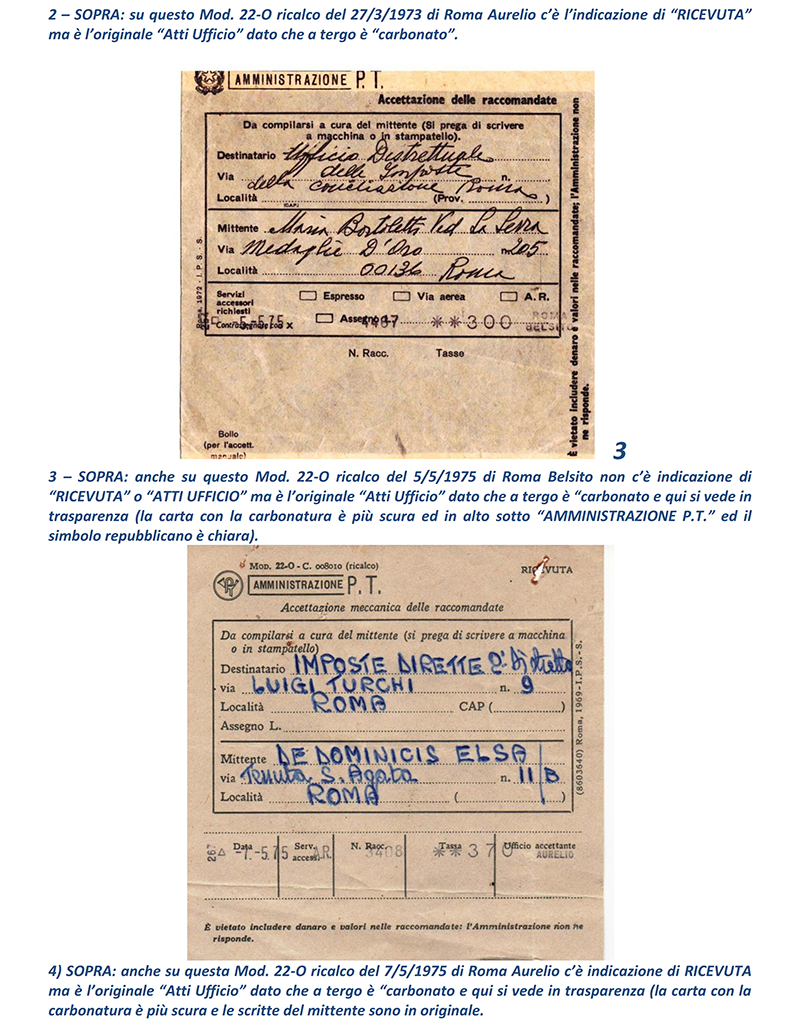 2 – SOPRA: su questo Mod. 22-O ricalco del 27/3/1973 di Roma Aurelio c’è l’indicazione di “RICEVUTA”
ma è l’originale “Atti Ufficio” dato che a tergo è “carbonato”.
AMMINISTRAZIONE P.T.
Accettazione delle raccomandate
Da compilarsi a cura del mittente (Si prega di scrivere
a macchina o in stampatello).
Destinatario Ufficio Distrettuale
Via delle Imposte n.
della conciliazione Roma
Località (Prov. )
(CAP)
Mittente Maria Bortoletti Ved La Serra
Via Medaglie D'Oro n 205
Località 00136 Roma
Servizi
accessori
richiesti
Espresso Via aerea A. R.
Contrassegnare con x Assegno
-5-5.75 **300 ROMA
BELSITO
N. Racc. Tasse
Bollo
(per l'accett.
manuale)
Roma, 1972 - I. P. S. - S.
È vietato includere denaro e valori nelle raccomandate; l'Amministrazione non
ne risponde.
3
3 – SOPRA: anche su questo Mod. 22-O ricalco del 5/5/1975 di Roma Belsito non c’è indicazione di
“RICEVUTA” o “ATTI UFFICIO” ma è l’originale “Atti Ufficio” dato che a tergo è “carbonato e qui si vede in
trasparenza (la carta con la carbonatura è più scura ed in alto sotto “AMMINISTRAZIONE P.T.” ed il
simbolo repubblicano è chiara).
MOD. 22-O - C. 008010 (ricalco) RICEVUTA
AMMINISTRAZIONE P. T.
Accettazione meccanica delle raccomandate
Da compilarsi a cura del mittente (si prega di scrivere a macchina
o in stampatello)
Destinatario IMPOSTE DIRETTE 2° Distretto
via LUIGI TURCHI n. 9
Località ROMA CAP ( )
Assegno L.
Mittente DE DOMINICIS ELSA
via Tenuta S. Agata n. 11/B
Località ROMA ( )
(8603640) Roma, 1969-I.P.S.-S.
Data Serv. accessi N. Racc. Tassa Ufficio accettante
267 -7.-5.75 A.R. 3408 **370 AURELIO
È vietato includere danaro e valori nelle raccomandate: l'Amministrazione non ne
risponde.
4) SOPRA: anche su questa Mod. 22-O ricalco del 7/5/1975 di Roma Aurelio c’è indicazione di RICEVUTA
ma è l’originale “Atti Ufficio” dato che a tergo è “carbonato e qui si vede in trasparenza (la carta con la
carbonatura è più scura e le scritte del mittente sono in originale.